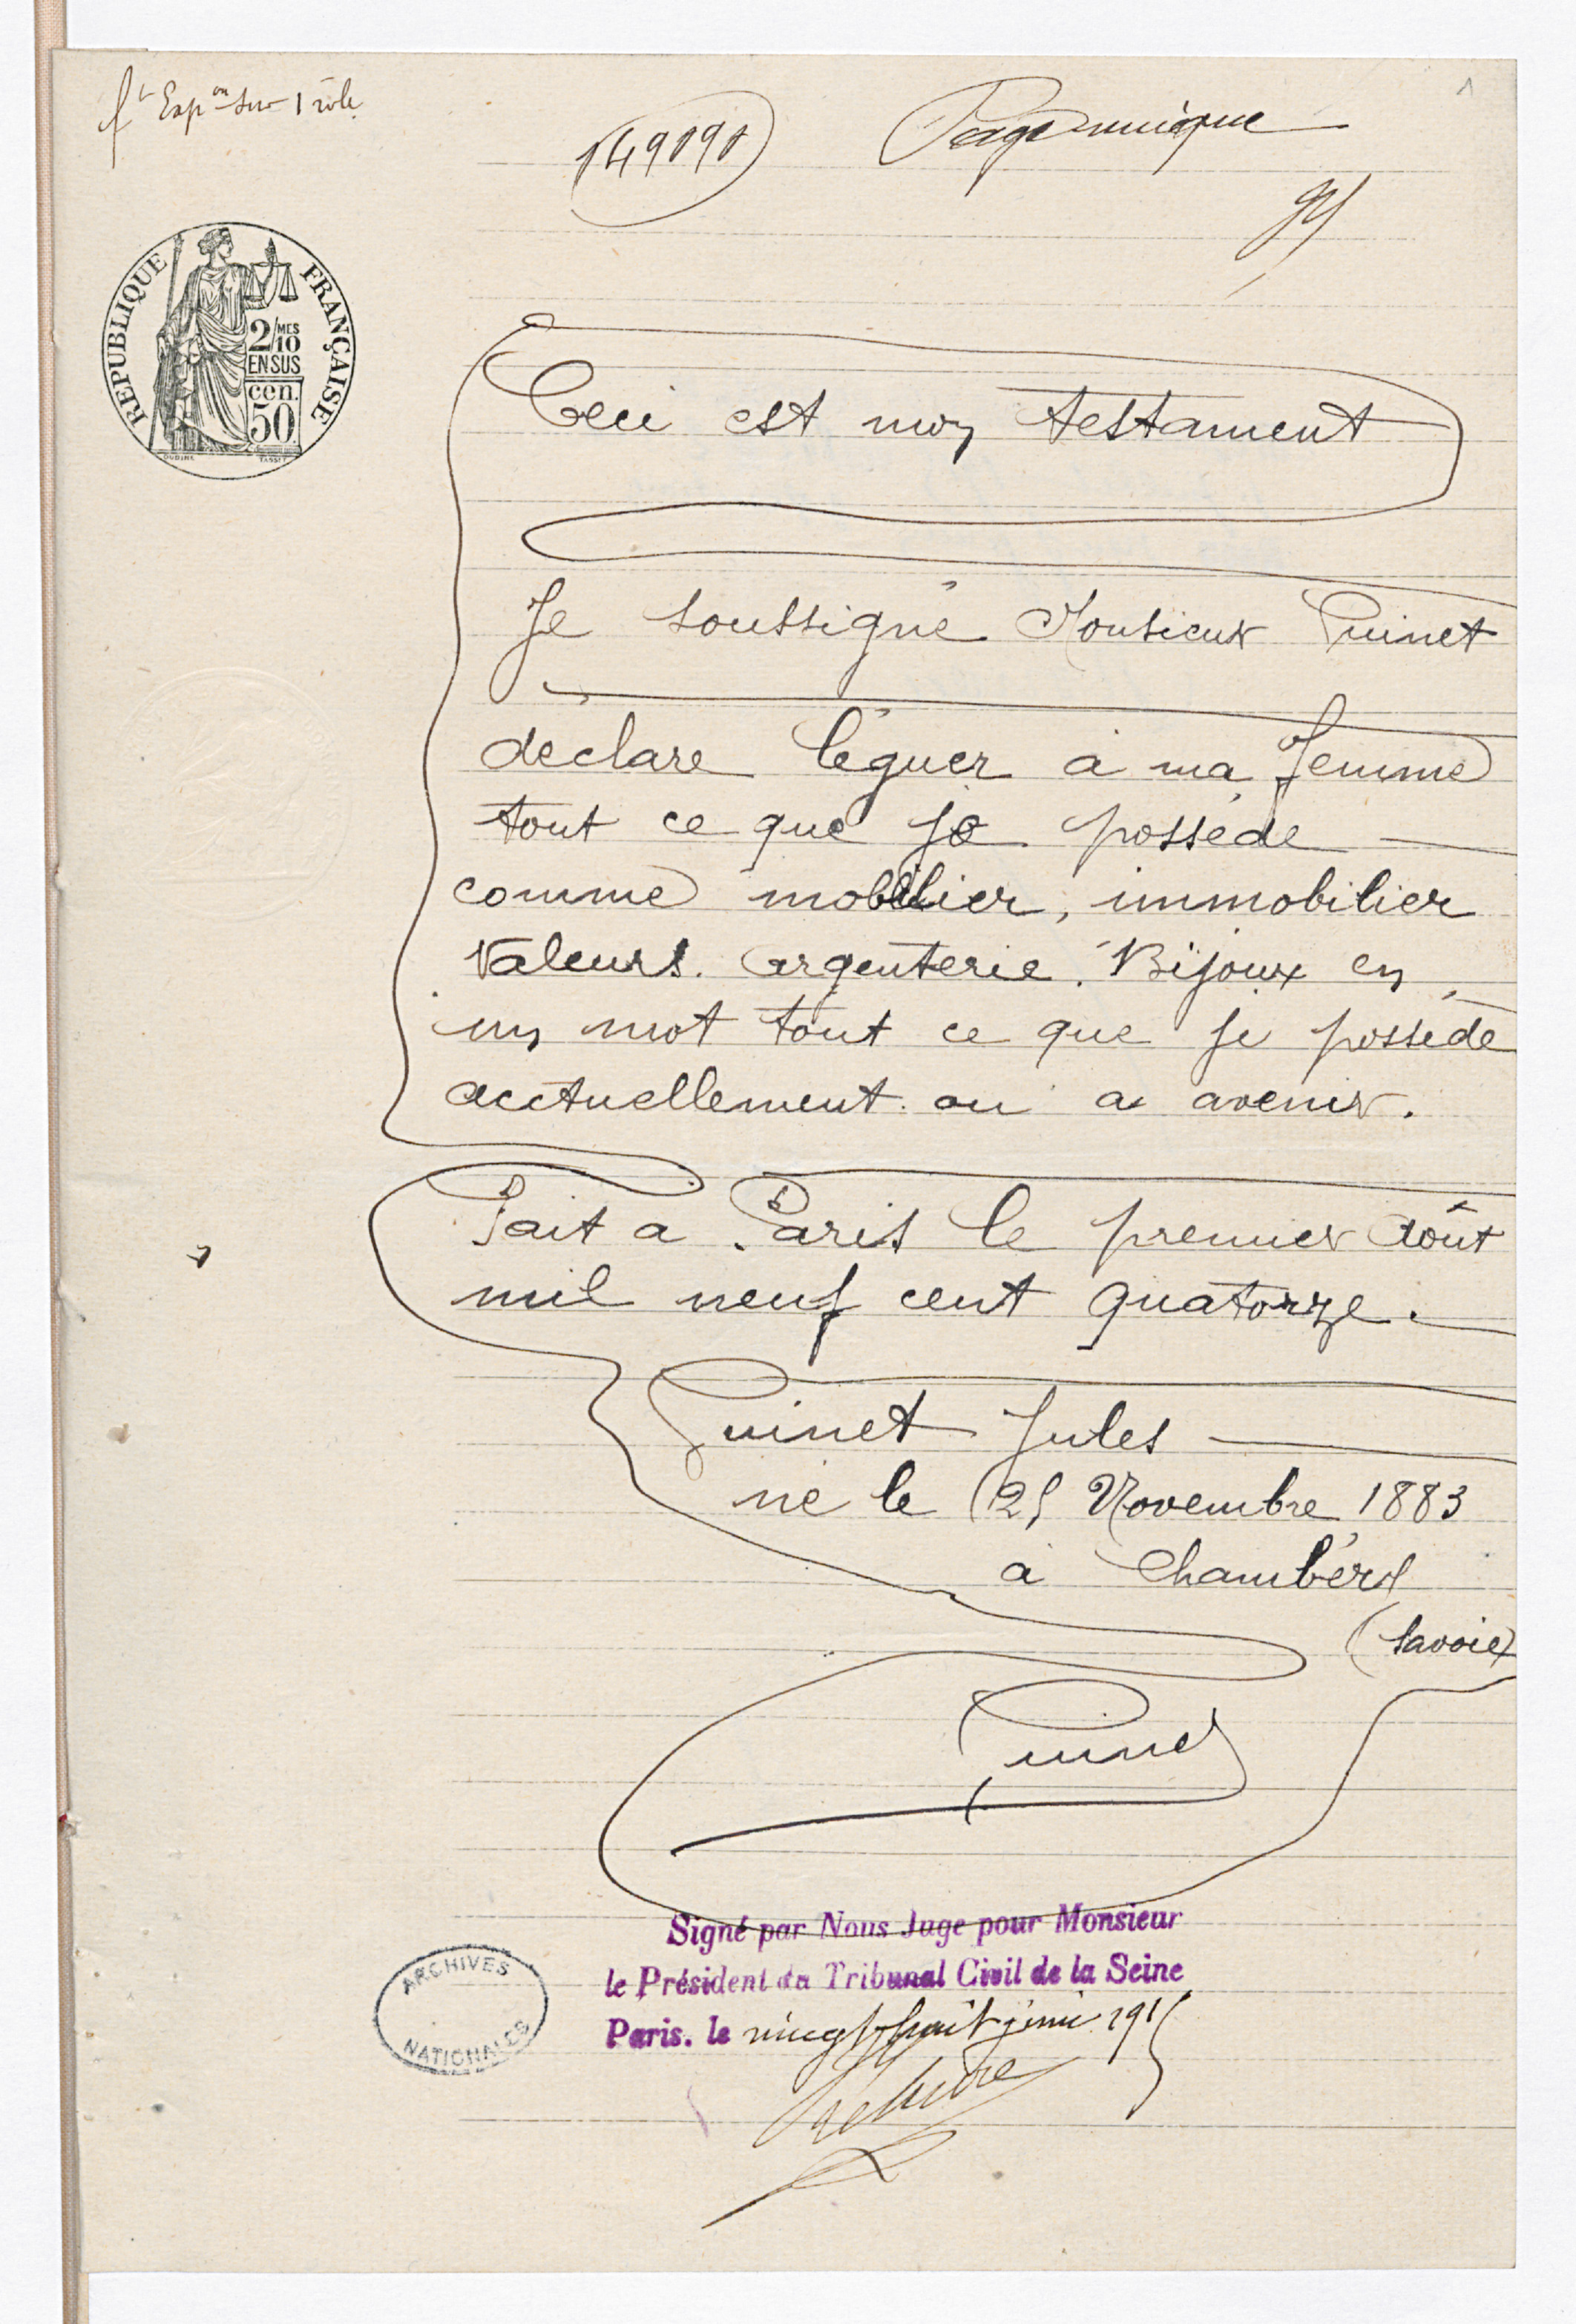 ft Expon sur 1 rôle
149090
Page unique
1
RÉPUBLIQUE FRANÇAISE
2/MES
10
EN SUS
cen.
50
OUDINÉ TASSET
Ceci est mon testament
Je soussigné Monsieur Puinet
déclare léguer à ma femme
tout ce que je possède
comme mobilier, immobilier
Valeurs. argenterie. Bijoux en
un mot tout ce que je possède
acctuellement ou a avenir.
Fait a Paris le premier Aôut
mil neuf cent quatorze.
Puinet Jules
né le 25 Novembre 1883
à Chambéry
(Savoie)
Puinet
Signé par Nous Juge pour Monsieur
le Président du Tribunal Civil de la Seine
Paris. le vingt-huit juin 1915
ARCHIVES
NATIONALES